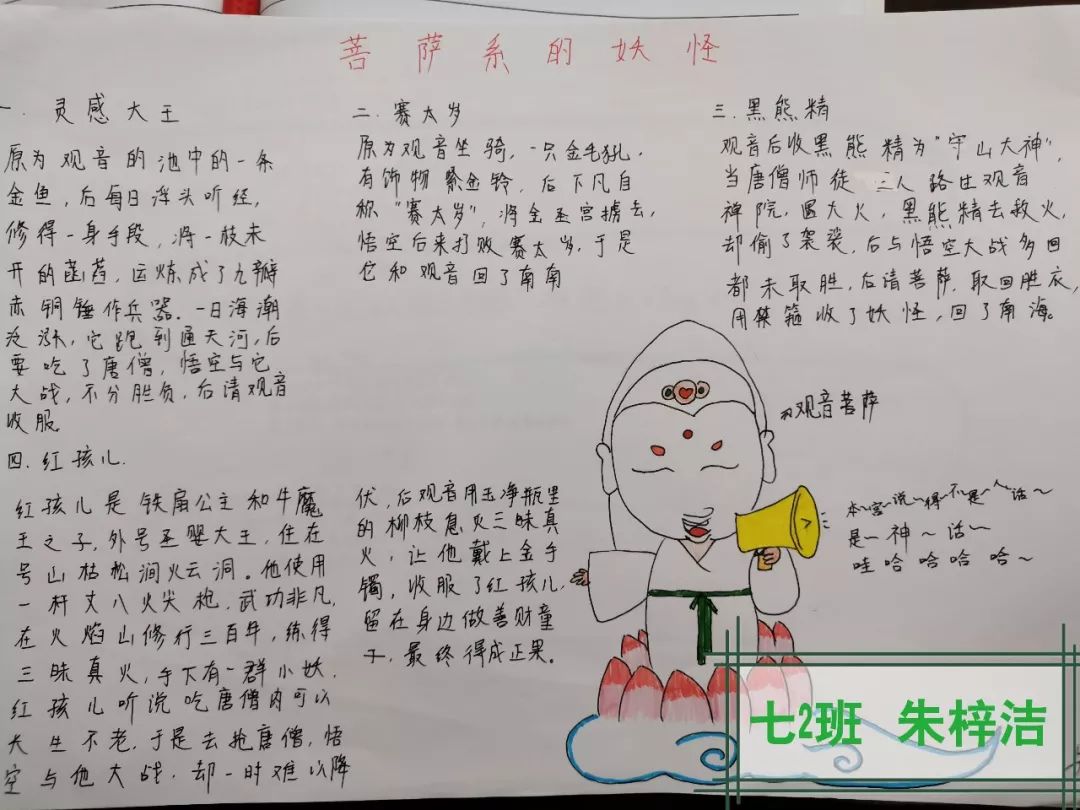 菩萨系的妖怪
一. 灵感大王
原为观音的池中的一条
金鱼，后每日浮头听经，
修得一身手段，将一枝未
开的菡萏，运炼成了九瓣
赤铜锤作兵器．一日海潮
泛涨，它跑到通天河，后
要吃了唐僧，悟空与它
大战，不分胜负，后请观音
收服
二. 赛太岁
原为观音坐骑，一只金毛犼，
有饰物紫金铃，后下凡自
称"赛太岁"，将金圣宫掳去，
悟空后来打败赛太岁，于是
它和观音回了南南
三. 黑熊精
观音后收黑熊精为"守山大神"，
当唐僧师徒三人路过观音
禅院，遇大火，黑熊精去救火，
却偷了袈裟，后与悟空大战多回
都未取胜，后请菩萨，取回胜衣，
用禁箍收了妖怪，回了南海。
四. 红孩儿．
红孩儿是铁扇公主和牛魔
王之子，外号圣婴大王，住在
号山枯松涧火云洞。他使用
一杆丈八火尖枪，武功非凡，
在火焰山修行三百年，练得
三昧真火，手下有一群小妖．
红孩儿听说吃唐僧肉可以
长生不老，于是去抢唐僧，悟
空与他大战，却一时难以降
伏，后观音用玉净瓶里
的柳枝息灭三昧真
火，让他戴上金手
镯，收服了红孩儿，
留在身边做善财童
子，最终得成正果。
观音菩萨
本~宫~说~得~不~是~人~话~
是~神~话~
哇哈哈哈哈~
七2班 朱梓洁